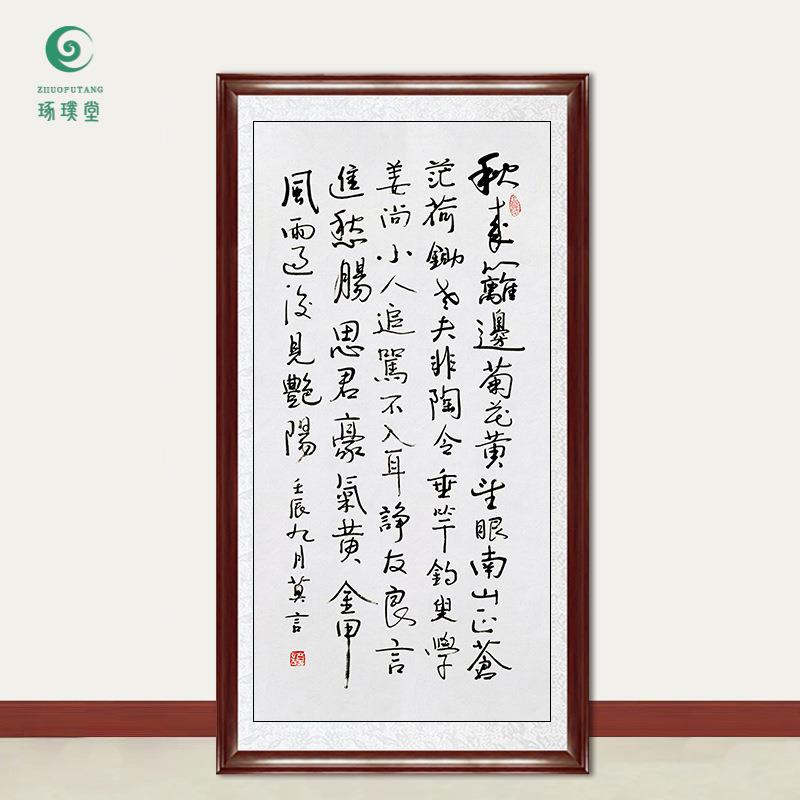 ZHUOPUTANG
琢璞堂
秋來籬邊菊花黄望眼南山正蒼
茫荷鋤老夫非陶令垂竿釣叟學
姜尚小人追罵不入耳諍友良言
進愁腸思君豪氣黄金甲
風雨過後見艷陽 壬辰九月莫言